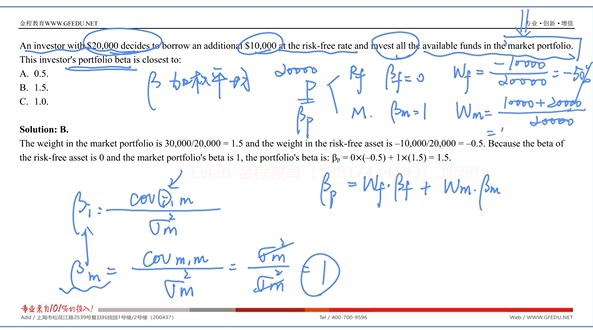 金程教育WWW.GFEDU.NET
专业·创新·增值
An investor with $20,000 decides to borrow an additional $10,000 at the risk-free rate and invest all the available funds in the market portfolio.
This investor's portfolio beta is closest to:
A. 0.5.
B. 1.5.
C. 1.0.
β 加权平均
20000
P
βp
Rf βf = 0 Wf = -10000 / 20000 = -50%
M. βm = 1 Wm = 10000 + 20000 / 20000
Solution: B.
The weight in the market portfolio is 30,000/20,000 = 1.5 and the weight in the risk-free asset is –10,000/20,000 = –0.5. Because the beta of
the risk-free asset is 0 and the market portfolio's beta is 1, the portfolio's beta is: βp = 0×(–0.5) + 1×(1.5) = 1.5.
βp = Wf·βf + Wm·βm
βi = cov i, m / σm²
βm = cov m, m / σm² = σm² / σm² = 1
专业来自101%的投入!
Add / 上海市松花江路2539号复旦科技园1号楼/2号楼 (200437)
Tel / 400-700-9596
Web / WWW.GFEDU.NET